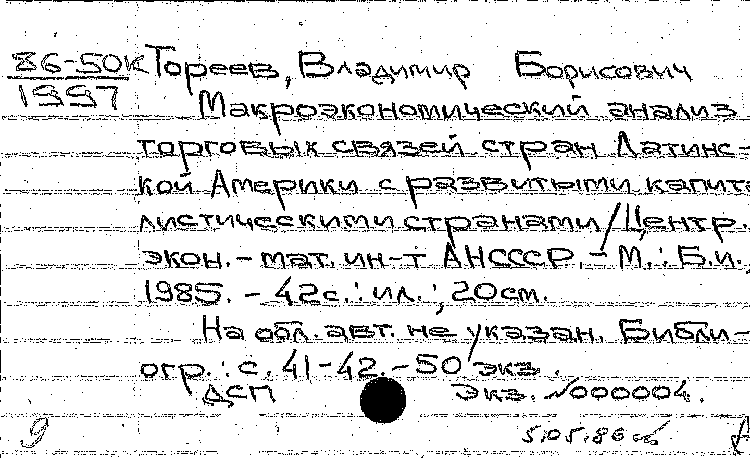 86-50к Тореев, Владимир Борисович
1997 Макроэкономический анализ
торговых связей стран Латинс-
кой Америки с развитыми капита
листическими странами/Центр.
экон.-мат. ин-т АНСССР.-М.: Б.и.,
1985. - 42с.: ил.; 20см.
На обл. авт. не указан. Библи-
огр.: с. 41-42. - 50 экз.
ДСП экз. №000004.
9 5.05.86